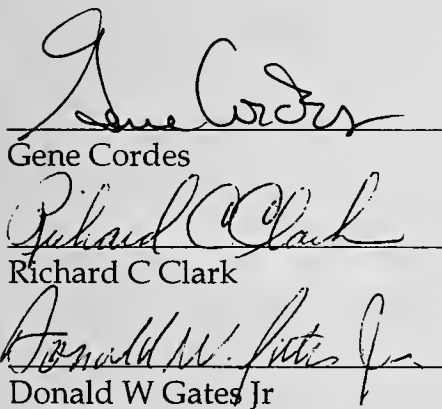 Gene Cordes
Gene Cordes
Richard C Clark
Richard C Clark
Donald W. Gates Jr.
Donald W Gates Jr